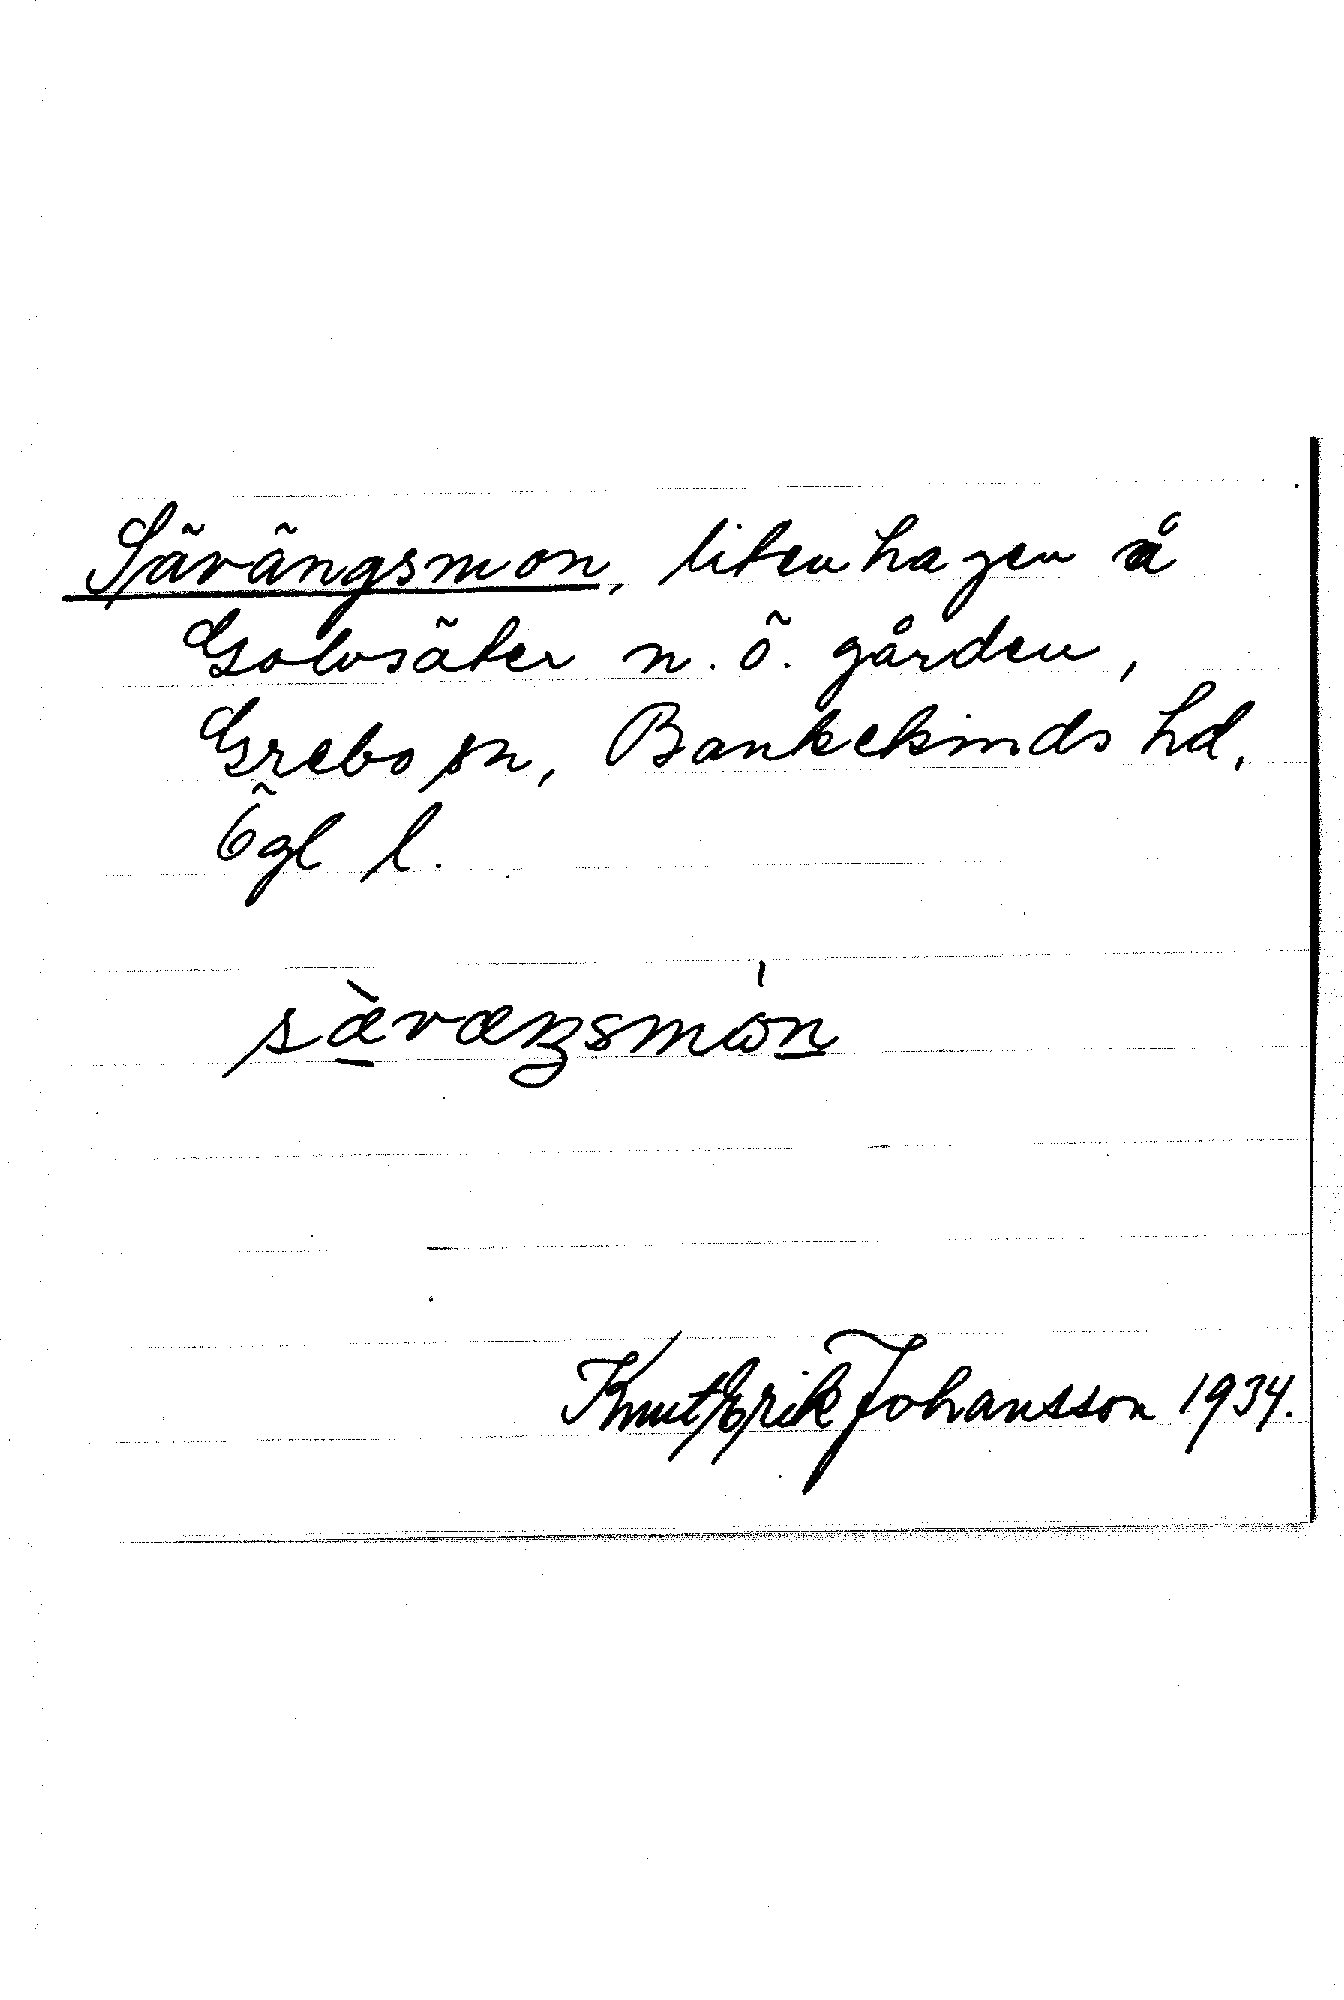 Sävängsmon, liten hagen å
Golvsäter n. ö. gården,
Grebo sn, Bankekinds hd.
Ögl l.
sæ̀væŋsmo̍n
Knut Erik Johansson 1934.